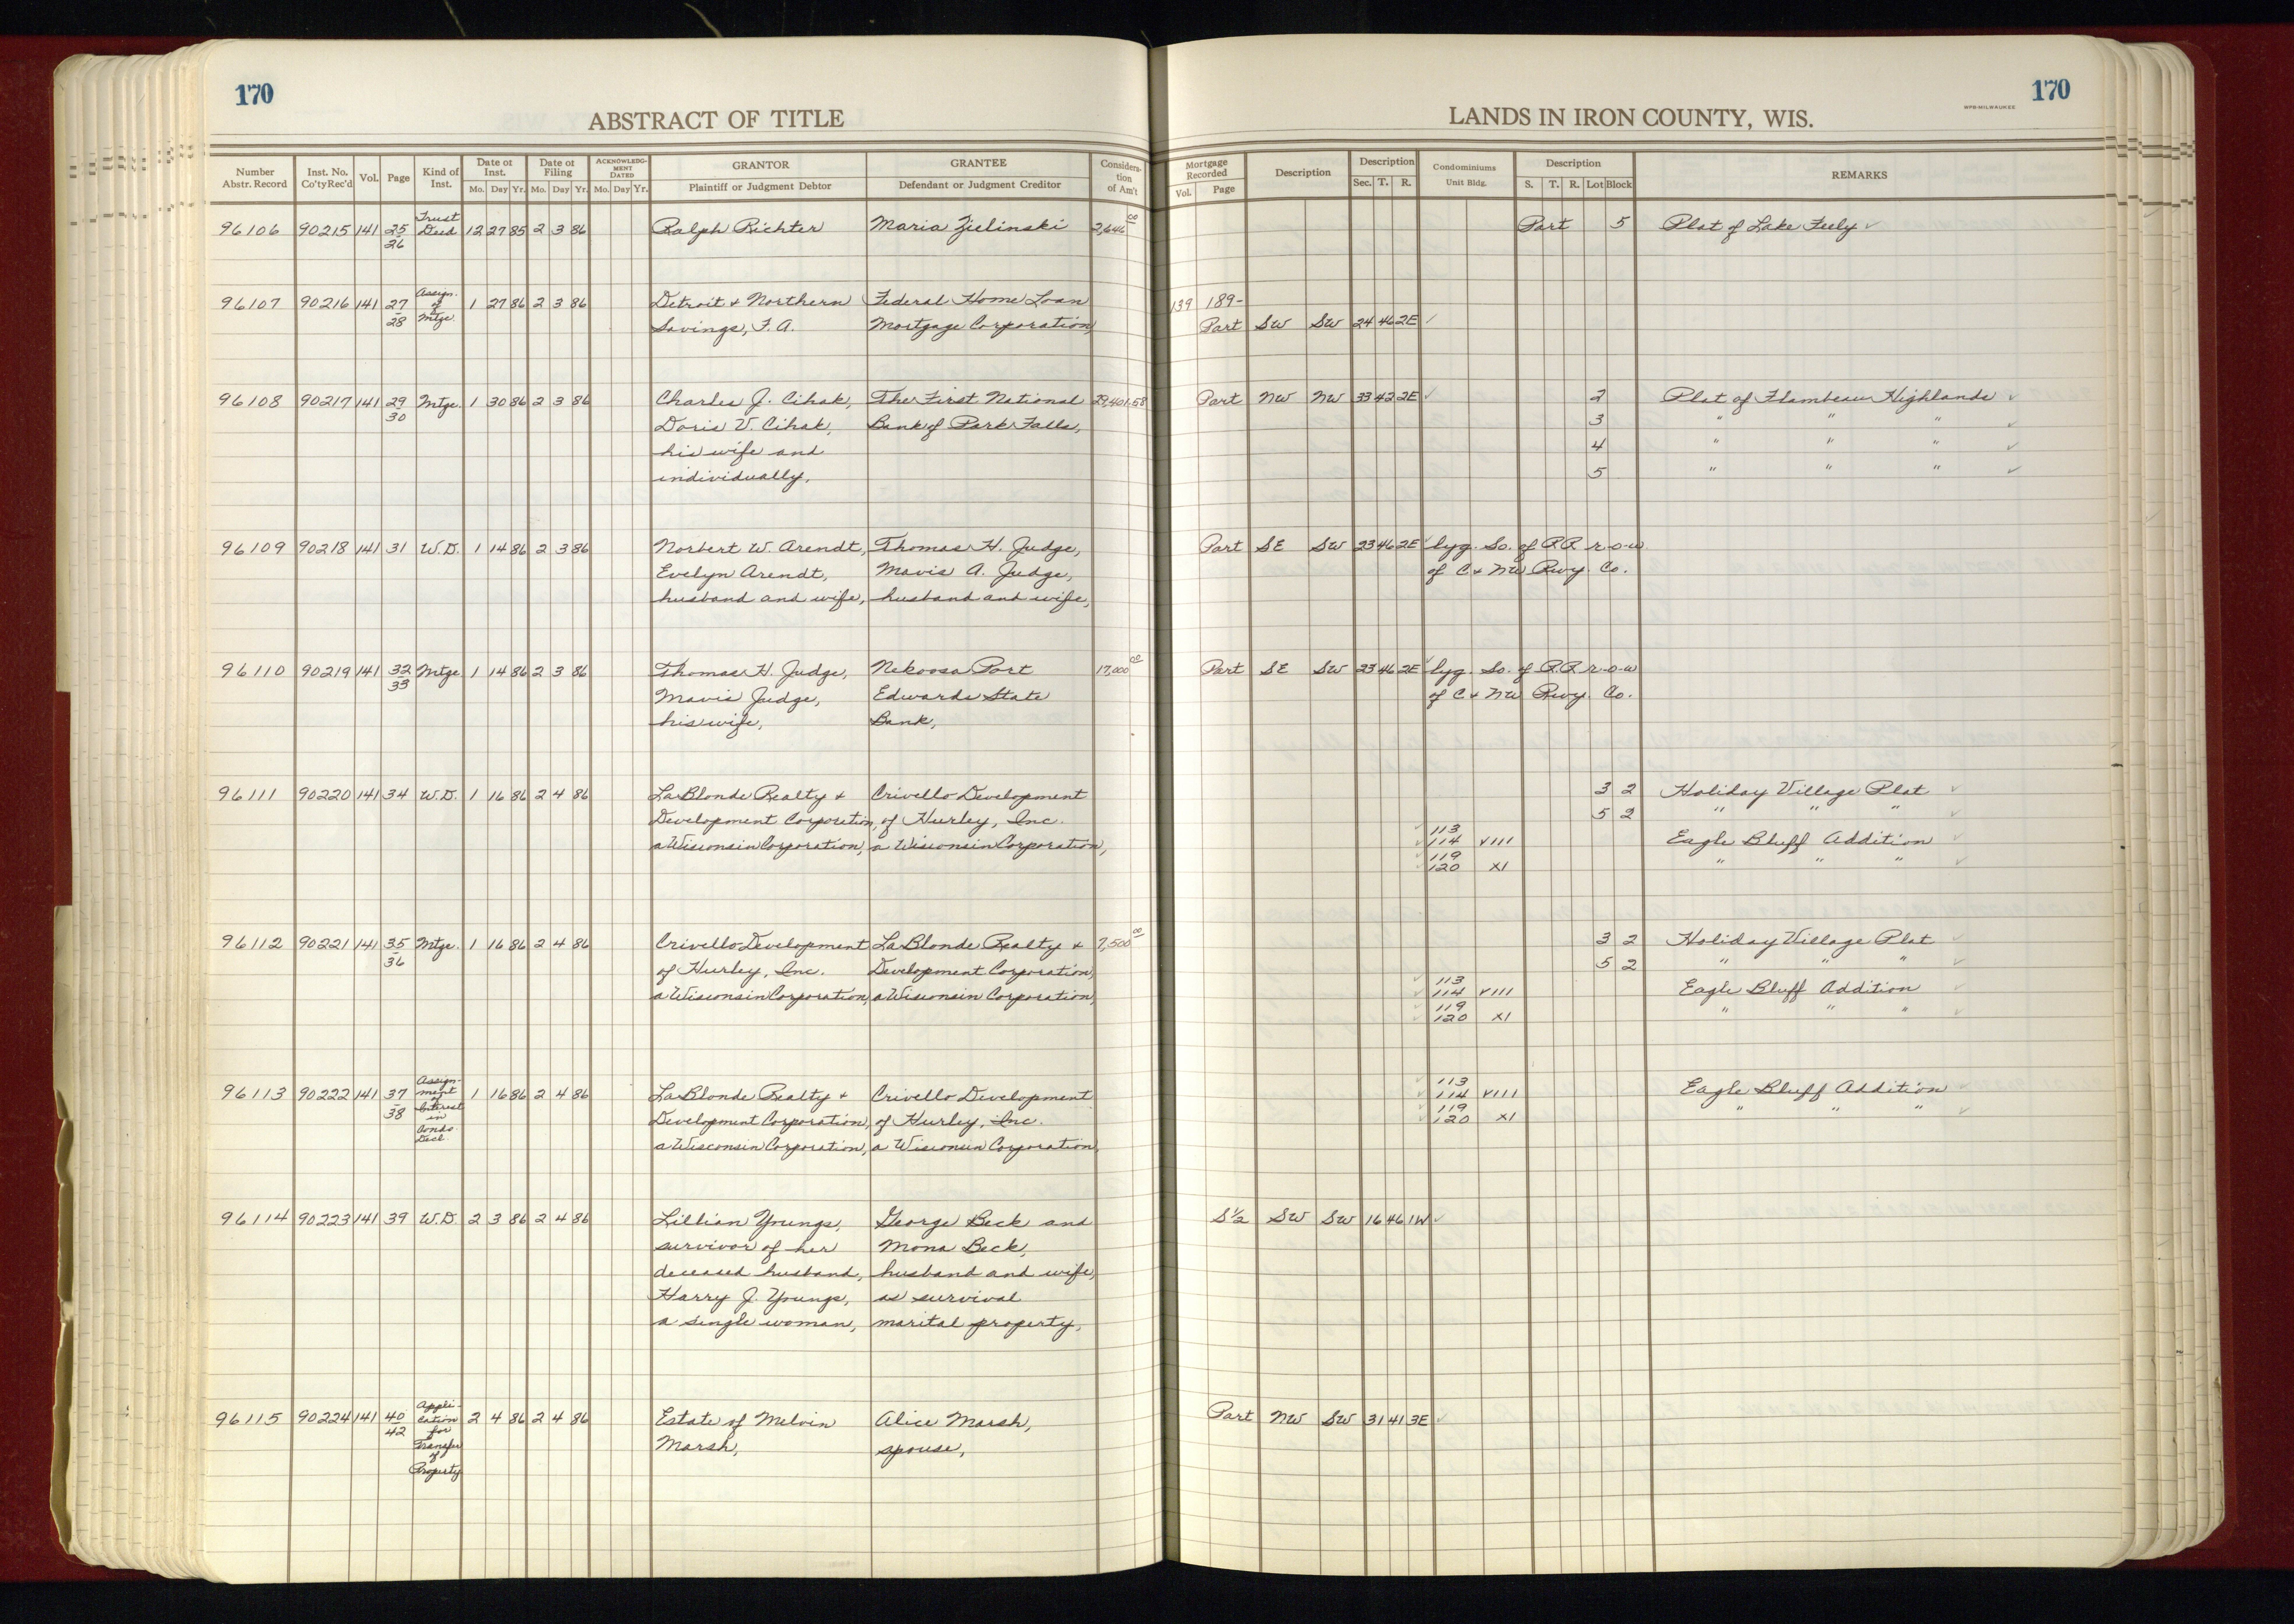 170
ABSTRACT OF TITLE
Number Abstr. Record
Inst. No. Co'ty Rec'd
Vol.
Page
Kind of Inst.
Date of Inst.
Mo. Day Yr.
Date of Filing
Mo. Day Yr.
ACKNOWLEDG-MENT DATED
Mo. Day Yr.
GRANTOR
Plaintiff or Judgment Debtor
GRANTEE
Defendant or Judgment Creditor
Considera-tion of Am't
170
WPB-MILWAUKEE
LANDS IN IRON COUNTY, WIS.
Mortgage Recorded
Vol. Page
Description
Description
Sec. T. R.
Condominiums
Unit Bldg.
Description
S. T. R. Lot Block
REMARKS
96106 90215 141 25/26 Trust Deed 12 27 85 2 3 86 Ralph Richter Maria Zielinski 2,646 00 Part 5 Plat of Lake Feely ✓
96107 90216 141 27-28 Assign. of Mtge. 1 27 86 2 3 86 Detroit & Northern Federal Home Loan 139 189-
Savings, F. A. Mortgage Corporation, Part SW SW 24 46 2E ✓
96108 90217 141 29/30 Mtge. 1 30 86 2 3 86 Charles J. Cihak, The First National 29,401.58 Part NW NW 33 42 2E ✓ 2 Plat of Flambeau Highlands ✓
Doris V. Cihak, Bank of Park Falls, 3 " " " ✓
his wife and 4 " " " ✓
individually, 5 " " " ✓
96109 90218 141 31 W.D. 1 14 86 2 3 86 Norbert W. Arendt, Thomas H. Judge, Part SE SW 23 46 2E lyg. So. of R.R. r-o-w
Evelyn Arendt, Mavis A. Judge, of C & NW Rwy. Co.
husband and wife, husband and wife,
96110 90219 141 32/33 Mtge 1 14 86 2 3 86 Thomas H. Judge, Nekoosa Port 17,000 00 Part SE SW 23 46 2E ✓ lyg. So. of R.R. r-o-w
Mavis Judge, Edwards State of C & NW Rwy. Co.
his wife, Bank,
96111 90220 141 34 W.D. 1 16 86 2 4 86 LaBlonde Realty & Crivello Development 3 2 Holiday Village Plat ✓
Development Corporation, of Hurley, Inc. 5 2 " " "
a Wisconsin Corporation, a Wisconsin Corporation,
✓ 113
✓ 114 VIII Eagle Bluff Addition ✓
✓ 119
✓ 120 XI " " " ✓
96112 90221 141 35/36 Mtge. 1 16 86 2 4 86 Crivello Development LaBlonde Realty & 7,500 00 3 2 Holiday Village Plat ✓
of Hurley, Inc. Development Corporation, 5 2 " " " ✓
a Wisconsin Corporation, a Wisconsin Corporation,
✓ 113
✓ 114 VIII Eagle Bluff Addition ✓
✓ 119
✓ 120 XI " " " ✓
96113 90222 141 37/38 Assign-ment of Interest in Condo. Decl. 1 16 86 2 4 86 LaBlonde Realty & Crivello Development
Development Corporation, of Hurley, Inc.
a Wisconsin Corporation, a Wisconsin Corporation,
✓ 113
✓ 114 VIII Eagle Bluff Addition ✓
✓ 119
✓ 120 XI " " " ✓
96114 90223 141 39 W.D. 2 3 86 2 4 86 Lillian Youngs, George Beck and S½ SW SW 16 46 1W ✓
survivor of her Mona Beck,
deceased husband, husband and wife,
Harry J. Youngs, as survival
a single woman, marital property,
96115 90224 141 40/42 Appli-cation for Transfer of Property 2 4 86 2 4 86 Estate of Melvin Alice Marsh, Part NW SW 31 41 3E ✓
Marsh, spouse,